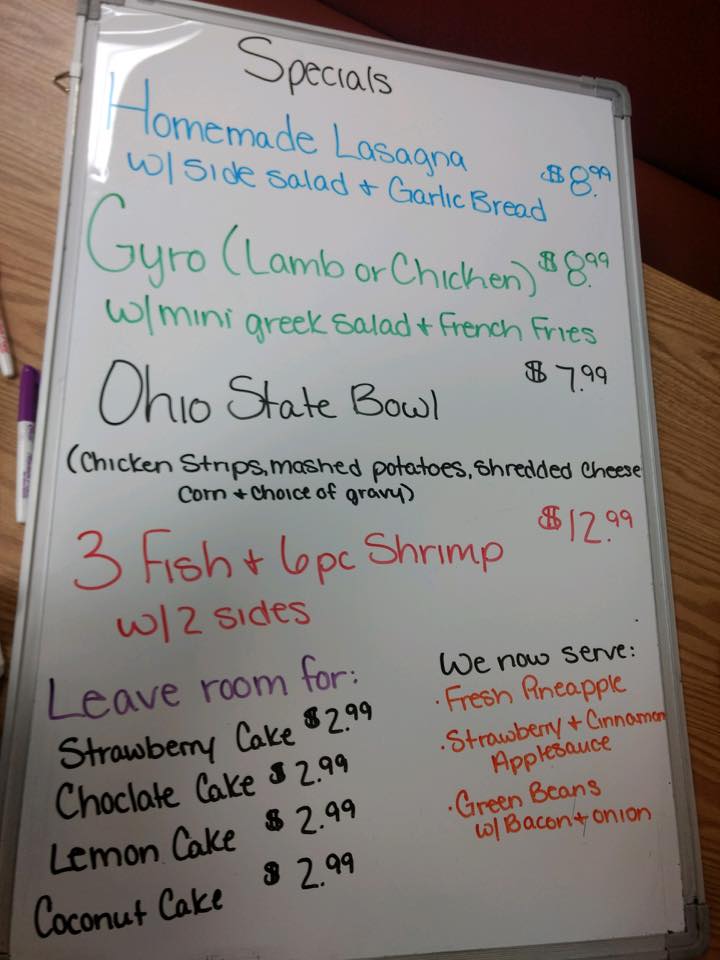 Specials
Homemade Lasagna
w/ side salad + Garlic Bread $8.99
Gyro (Lamb or Chicken) $8.99
w/mini greek salad + French Fries
Ohio State Bowl $7.99
(Chicken Strips, mashed potatoes, shredded cheese
corn + choice of gravy)
3 Fish + 6pc Shrimp $12.99
w/2 sides
Leave room for:
Strawberry Cake $2.99
Choclate Cake $2.99
Lemon Cake $2.99
Coconut Cake $2.99
We now serve:
· Fresh Pineapple
· Strawberry + Cinnamon
Applesauce
· Green Beans
w/ Bacon + onion